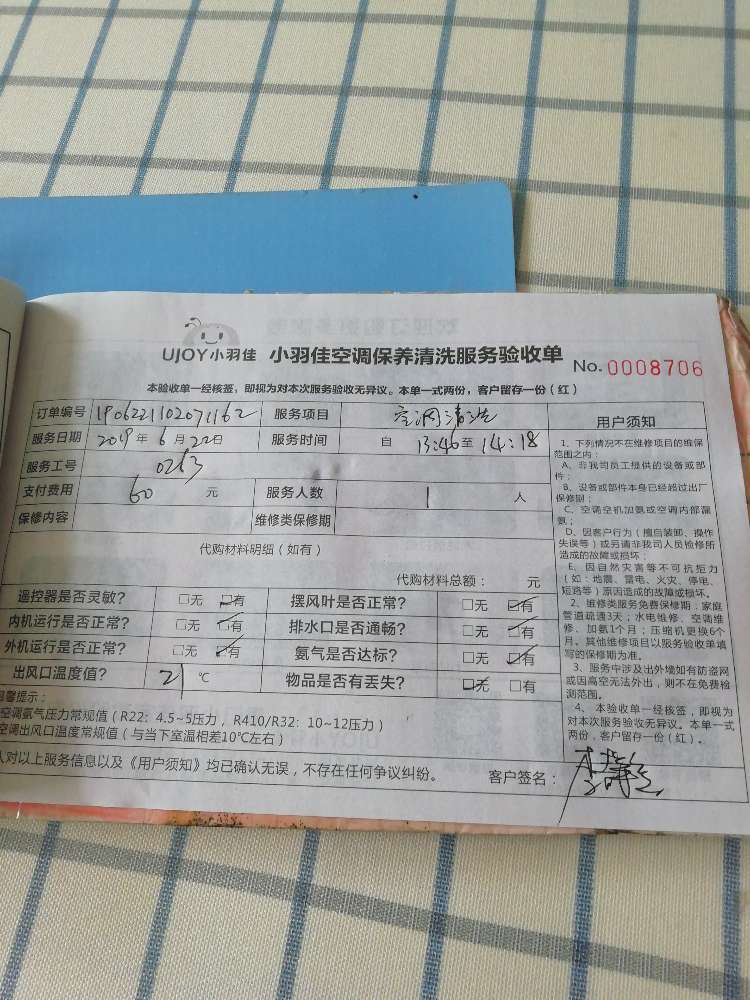 UJOY小羽佳 小羽佳空调保养清洗服务验收单 No. 0008706
本验收单一经核签，即视为对本次服务验收无异议。本单一式两份，客户留存一份（红）
订单编号 1906221102071162 服务项目
服务日期 2019年6月22日 服务时间 自 13:46至14:18
服务工号 0263
支付费用 60 元 服务人数 1 人
保修内容 维修类保修期
代购材料明细（如有）
代购材料总额： 元
遥控器是否灵敏？ □无 ☑有 摆风叶是否正常？ □无 ☑有
内机运行是否正常？ □无 ☑有 排水口是否通畅？ □无 ☑有
外机运行是否正常？ □无 ☑有 氨气是否达标？ □无 ☑有
出风口温度值？ 21 ℃ 物品是否有丢失？ ☑无 □有
提示：
空调氨气压力常规值（R22：4.5~5压力，R410/R32：10~12压力）
空调出风口温度常规值（与当下室温相差10℃左右）
人对以上服务信息以及《用户须知》均已确认无误，不存在任何争议纠纷。 客户签名：
用户须知
1、下列情况不在维修项目的维保
范围之内：
A、非我司员工提供的设备或部
件；
B、设备或部件本身已经超过出厂
保修期；
C、空调空机加氨或空调内部漏
氨；
D、因客户行为（擅自装卸、操作
失误等）或另请非我司人员检修所
造成的故障或损坏；
E、因自然灾害等不可抗拒力
（如：地震、雷电、火灾、停电、
短路等）原因造成的故障或损坏。
2、维修类服务免费保修期：家庭
管道疏通3天；水电维修、空调维
修、加氨1个月；压缩机更换6个
月，其他维修项目以服务验收单填
写的保修期为准。
3、服务中涉及出外墙如有防盗网
或因高空无法外出，则不在免费检
测范围。
4、本验收单一经核签，即视为
对本次服务验收无异议。本单一式
两份，客户留存一份（红）。